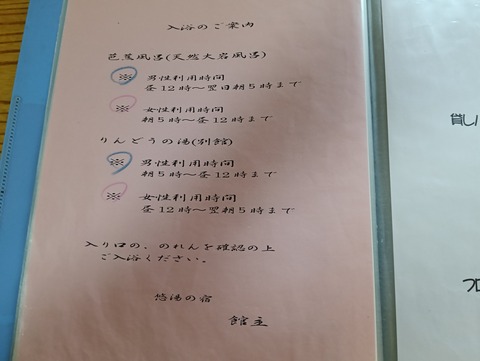 入浴のご案内
芭蕉風呂(天然大岩風呂)
※ 男性利用時間
昼12時〜翌日朝5時まで
※ 女性利用時間
朝5時〜昼12時まで
りんどうの湯(別館)
※ 男性利用時間
朝5時〜昼12時まで
※ 女性利用時間
昼12時〜翌朝5時まで
入り口の、のれんを確認の上
ご入浴ください。
悠湯の宿
館主
貸し
フロ